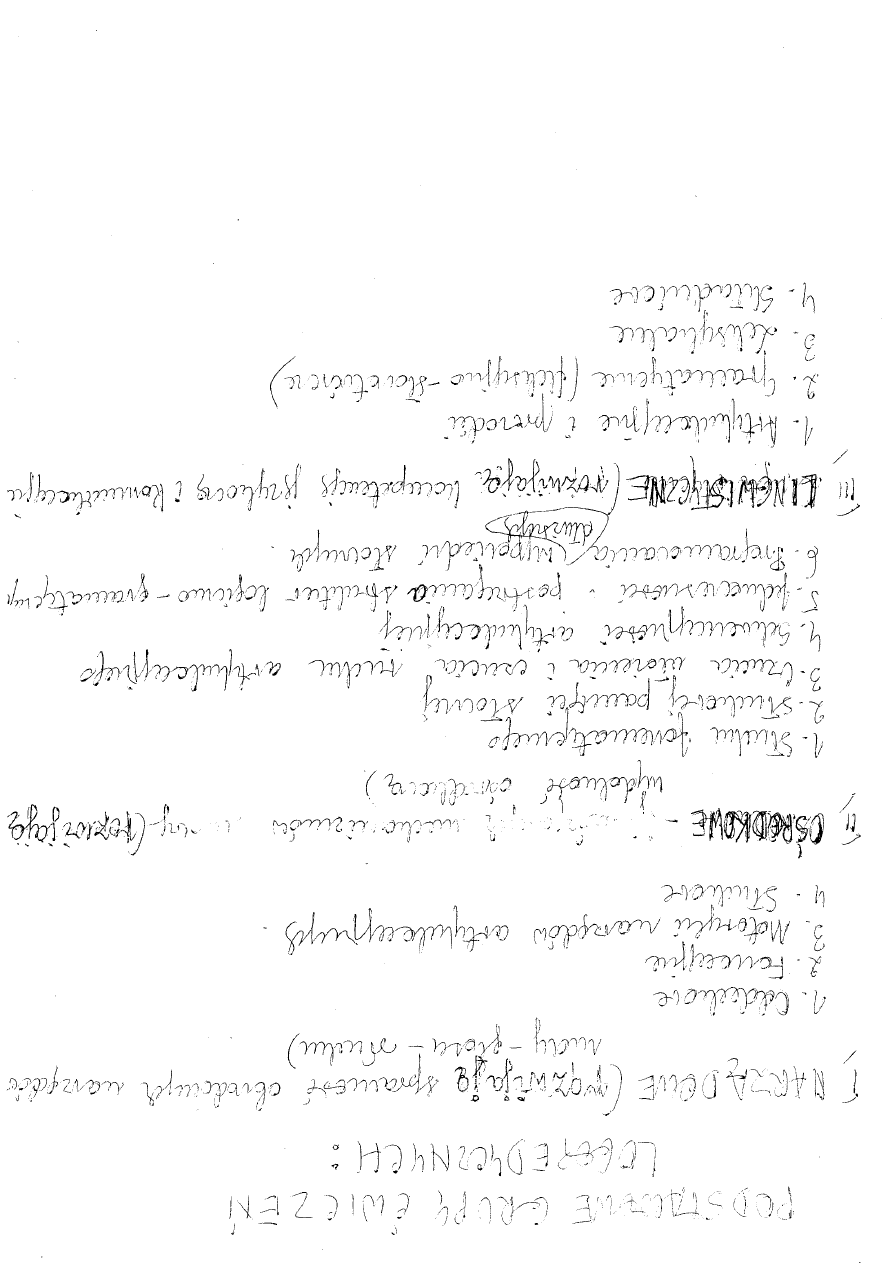 PODSTAWOWE GRUPY ĆWICZEŃ
LOGOPEDYCZNYCH:
I, NARZĄDOWE (rozwijają sprawność obwodowych narządów
mowy - głosu - słuchu)
1. Oddechowe
2. Fonacyjne
3. Motoryki narządów artykulacyjnych.
4. Słuchowe
II, OŚRODKOWE - mechanizmów mowy - (rozwijają
wydolność ośrodkową)
1. Słuchu fonematycznego
2. Słuchowej pamięci słownej
3. Czucia ułożenia i czucia ruchu artykulacyjnego
4. Sekwencyjności artykulacyjnej
5. Jednoczesności - postrzegania struktur logiczno - gramatycznych
6. Programowania wypowiedzi słownych.
dłuższych
III, LINGWISTYCZNE (rozwijają kompetencję językową i komunikacyjną
1. Artykulacyjne i prozodii
2. Gramatyczne (fleksyjno - słowotwórcze)
3. Leksykalne
4. Składniowe